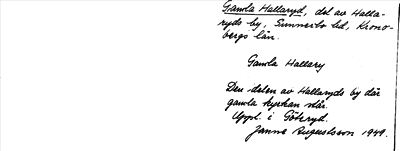 Gamla Hallaryd, del av Halla-
ryds by, Sunnerbo hd, Krono-
bergs län.
Gamla Hallary
Den delen av Hallaryds by där
gamla kyrkan står.
Uppt. i Göteryd.
Janne Augustsson 1949.